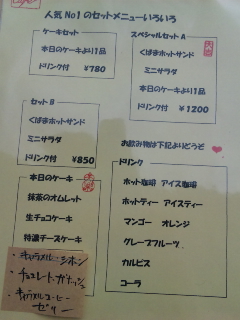 人気No1のセットメニューいろいろ
ケーキセット
本日のケーキより1品
ドリンク付 ¥780
スペシャルセットA
くばまホットサンド
ミニサラダ
本日のケーキより1品
ドリンク付 ¥1200
セットB
くばまホットサンド
ミニサラダ
ドリンク付 ¥850
本日のケーキ
抹茶のオムレット
生チョコケーキ
特濃チーズケーキ
・キャラメルシホン
・チョコレートガナッシュ
・キャラメルコーヒー
ゼリー
お飲み物は下記よりどうぞ
ドリンク
ホット珈琲 アイス珈琲
ホットティー アイスティー
マンゴー オレンジ
グレープフルーツ
カルピス
コーラ